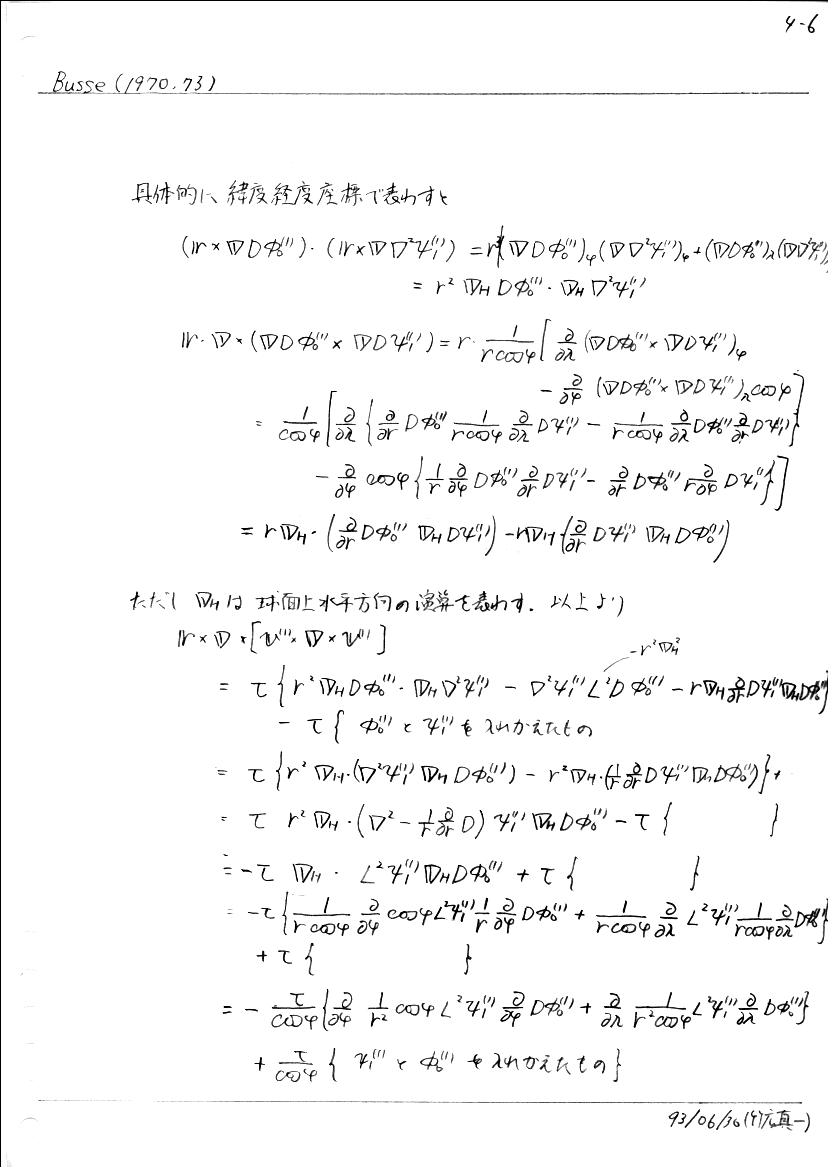 4-6
Busse (1970, 73)
具体的に、緯度経度座標で表わすと
(𝕣×∇DΦ₀⁽¹⁾)·(𝕣×∇∇²Ψ₁⁽¹⁾) = r²{(∇DΦ₀⁽¹⁾)φ(∇∇²Ψ₁⁽¹⁾)φ + (∇DΦ₀⁽¹⁾)λ(∇∇²Ψ₁⁽¹⁾)λ
= r² ∇H DΦ₀⁽¹⁾·∇H∇²Ψ₁⁽¹⁾
𝕣·∇×(∇DΦ₀⁽¹⁾×∇DΨ₁⁽¹⁾) = r· 1/(r cosφ) [ ∂/∂λ (∇DΦ₀⁽¹⁾×∇DΨ₁⁽¹⁾)φ
− ∂/∂φ (∇DΦ₀⁽¹⁾×∇DΨ₁⁽¹⁾)λ cosφ ]
= 1/cosφ [ ∂/∂λ { ∂/∂r DΦ₀⁽¹⁾ 1/(r cosφ) ∂/∂λ DΨ₁⁽¹⁾ − 1/(r cosφ) ∂/∂λ DΦ₀⁽¹⁾ ∂/∂r DΨ₁⁽¹⁾ }
− ∂/∂φ cosφ { 1/r ∂/∂φ DΦ₀⁽¹⁾ ∂/∂r DΨ₁⁽¹⁾ − ∂/∂r DΦ₀⁽¹⁾ ∂/r∂φ DΨ₁⁽¹⁾ } ]
= r∇H·( ∂/∂r DΦ₀⁽¹⁾ ∇H DΨ₁⁽¹⁾ ) − r∇H·( ∂/∂r DΨ₁⁽¹⁾ ∇H DΦ₀⁽¹⁾ )
ただし ∇H は 球面上水平方向の演算を表わす. 以上より
𝕣×∇×[𝕧⁽¹⁾×∇×𝕧⁽¹⁾]
−r²∇H²
= τ { r²∇H DΦ₀⁽¹⁾·∇H∇²Ψ₁⁽¹⁾ − ∇²Ψ₁⁽¹⁾L²DΦ₀⁽¹⁾ − r∇H ∂/∂r DΨ₁⁽¹⁾∇H DΦ₀⁽¹⁾ }
− τ { Φ₀⁽¹⁾ と Ψ₁⁽¹⁾ を 入れかえたもの
= τ { r²∇H·(∇²Ψ₁⁽¹⁾∇H DΦ₀⁽¹⁾) − r²∇H·( 1/r ∂/∂r DΨ₁⁽¹⁾∇H DΦ₀⁽¹⁾ ) } +
= τ r²∇H·( ∇² − 1/r ∂/∂r D ) Ψ₁⁽¹⁾∇H DΦ₀⁽¹⁾ − τ { }
= −τ ∇H· L²Ψ₁⁽¹⁾∇H DΦ₀⁽¹⁾ + τ { }
= −τ { 1/(r cosφ) ∂/∂φ cosφ L²Ψ₁⁽¹⁾ 1/r ∂/∂φ DΦ₀⁽¹⁾ + 1/(r cosφ) ∂/∂λ L²Ψ₁⁽¹⁾ 1/(r cosφ) ∂/∂λ DΦ₀⁽¹⁾ }
+ τ { }
= − τ/cosφ { ∂/∂φ 1/r² cosφ L²Ψ₁⁽¹⁾ ∂/∂φ DΦ₀⁽¹⁾ + ∂/∂λ 1/(r² cosφ) L²Ψ₁⁽¹⁾ ∂/∂λ DΦ₀⁽¹⁾ }
+ τ/cosφ { Ψ₁⁽¹⁾ と Φ₀⁽¹⁾ を入れかえたもの }
93/06/30 (竹広真一)